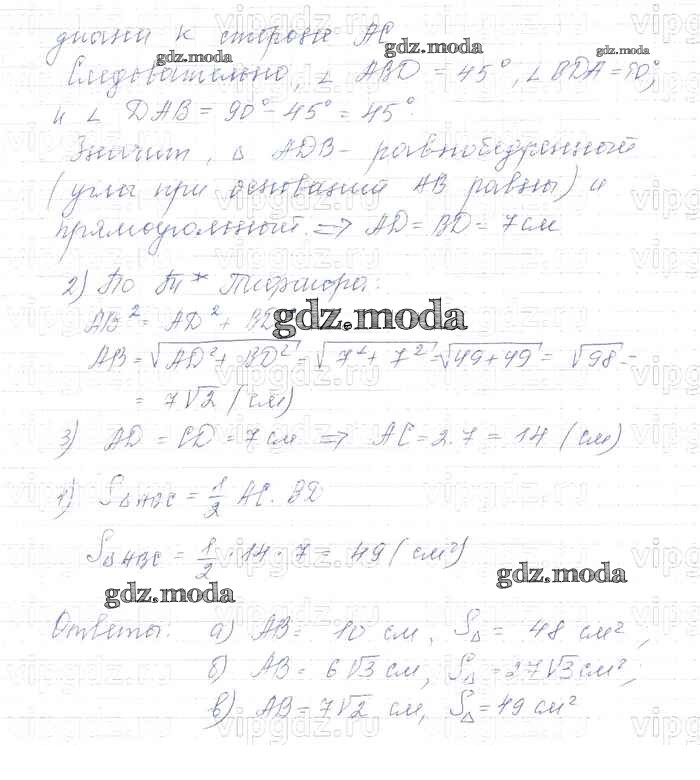 дианы к стороне AC
gdz.moda gdz.moda gdz.moda
Следовательно, ∠ ABD = 45°, ∠ BDA = 90°,
и ∠ DAB = 90° - 45° = 45°.
Значит, △ ADB - равнобедренный
(углы при основании AB равны) и
прямоугольный ⇒ AD = BD = 7 см
2) По т* Пифагора:
AB² = AD² + BD
gdz.moda
AB = √AD² + BD² = √7² + 7² = √49 + 49 = √98 =
= 7√2 (см)
3) AD = CD = 7 см ⇒ AC = 2 · 7 = 14 (см)
S△ABC = 1/2 AC · BD
S△ABC = 1/2 · 14 · 7 = 49 (см²)
gdz.moda gdz.moda
Ответы: а) AB = 10 см, S△ = 48 см²,
б) AB = 6√3 см, S△ = 27√3 см²,
в) AB = 7√2 см, S△ = 49 см²
vipgdz.ru